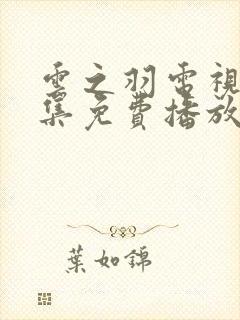 雲之羽電視
集免費播放
葉如錦